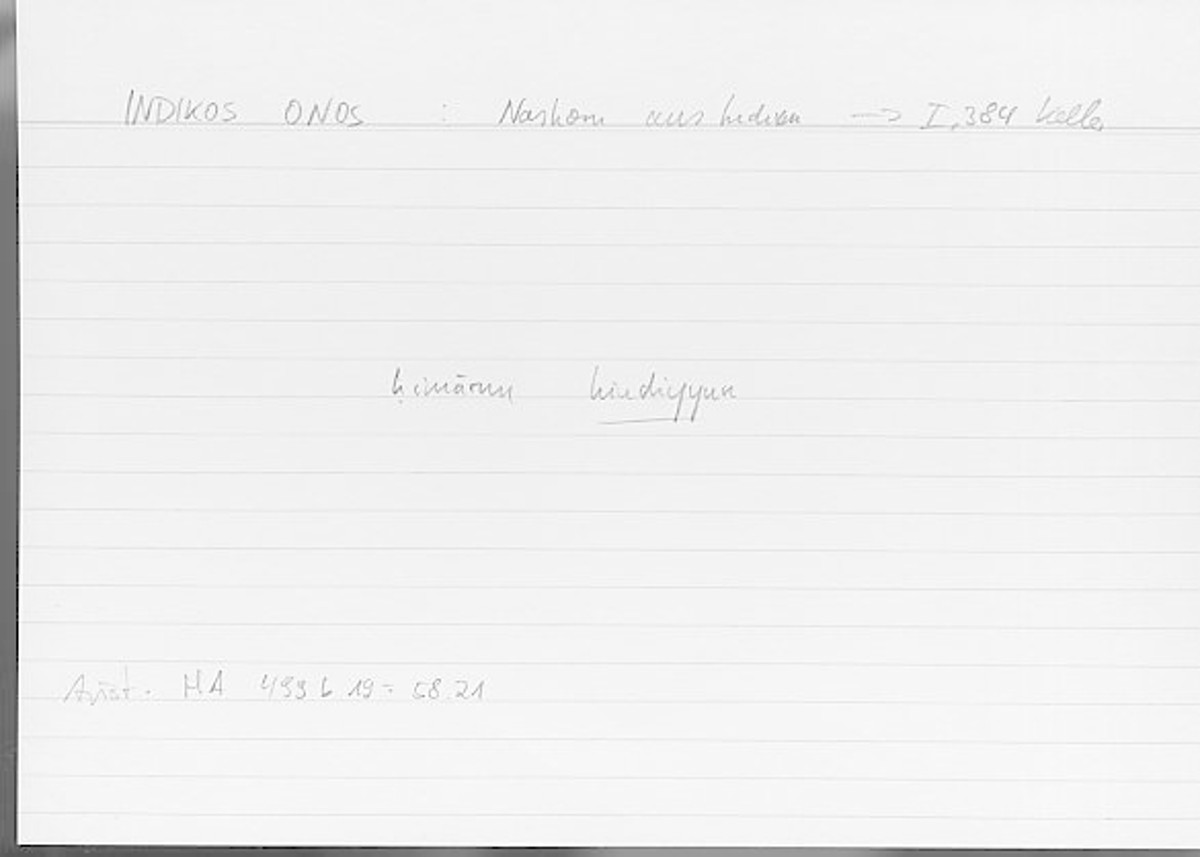 INDIKOS ONOS : Nashorn aus Indien → I, 384 Keller
ḥimārun hindiyyun
Arist. HA 499 b 19 = 58.21